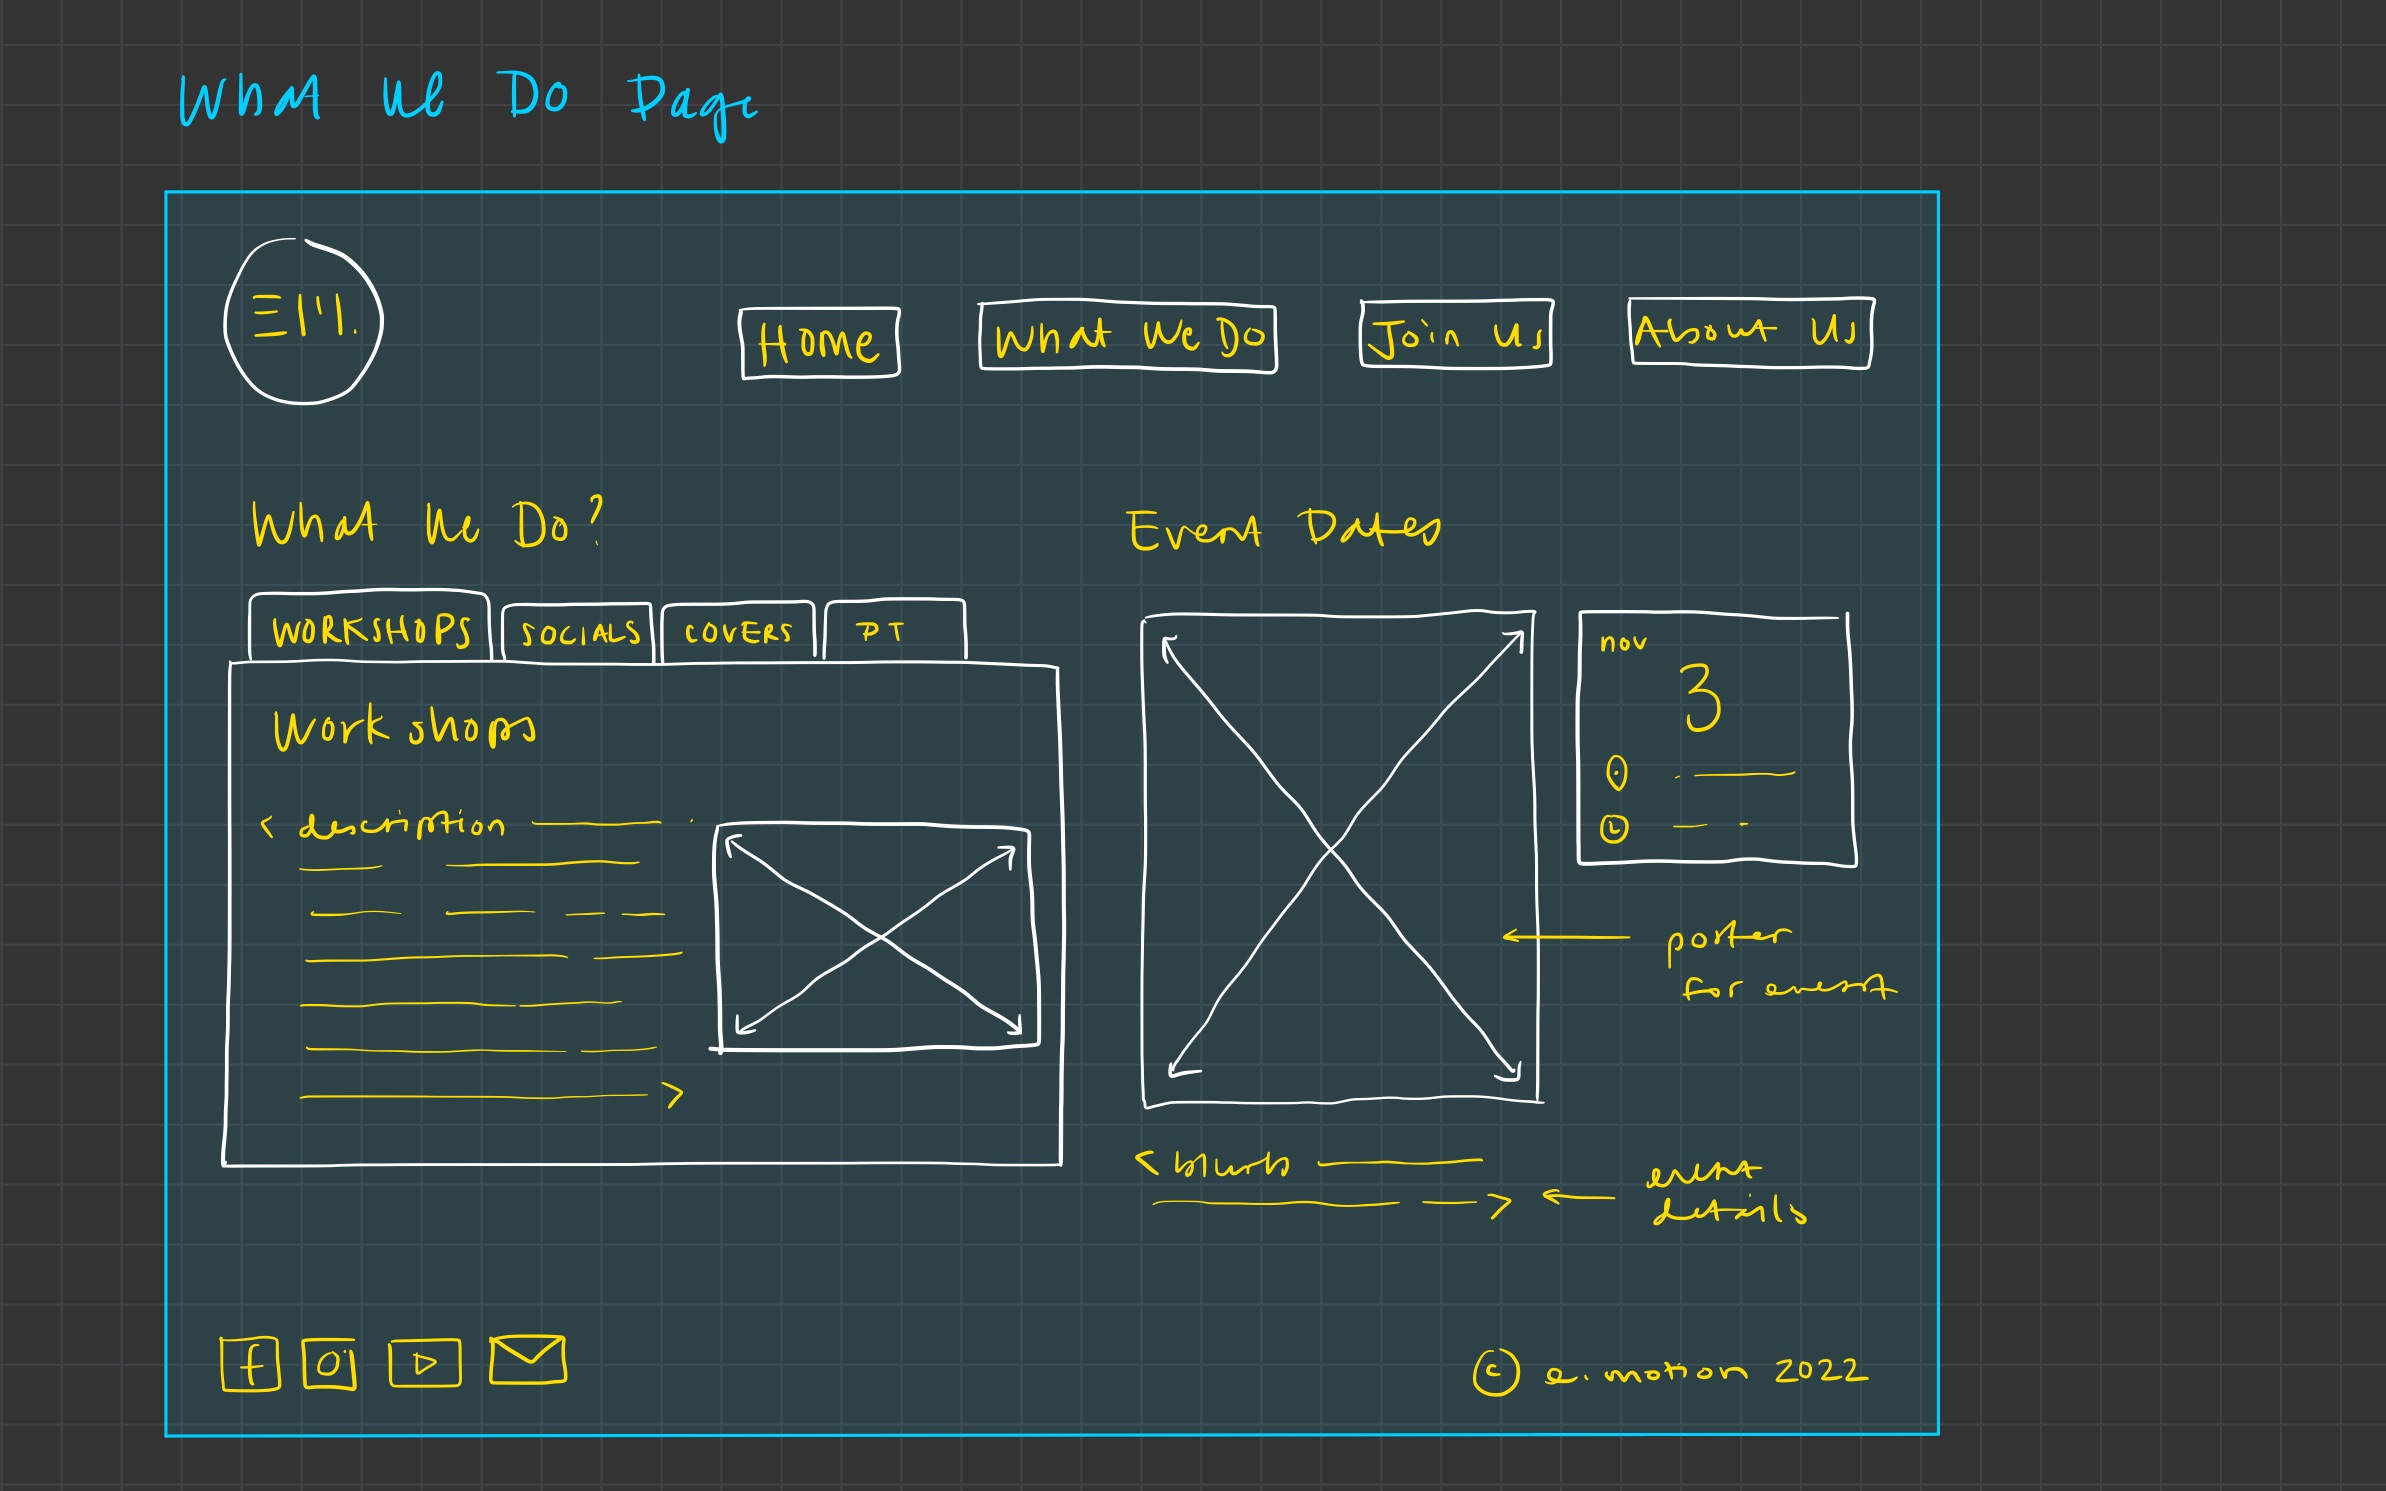 What We Do Page
Home
What We Do
Join Us
About Us
What We Do?
Event Dates
WORKSHOPS
SOCIALS
COVERS
PT
Workshops
< description
>
nov
3
poster
for event
< blurb
>
event
details
f
© e.motion 2022